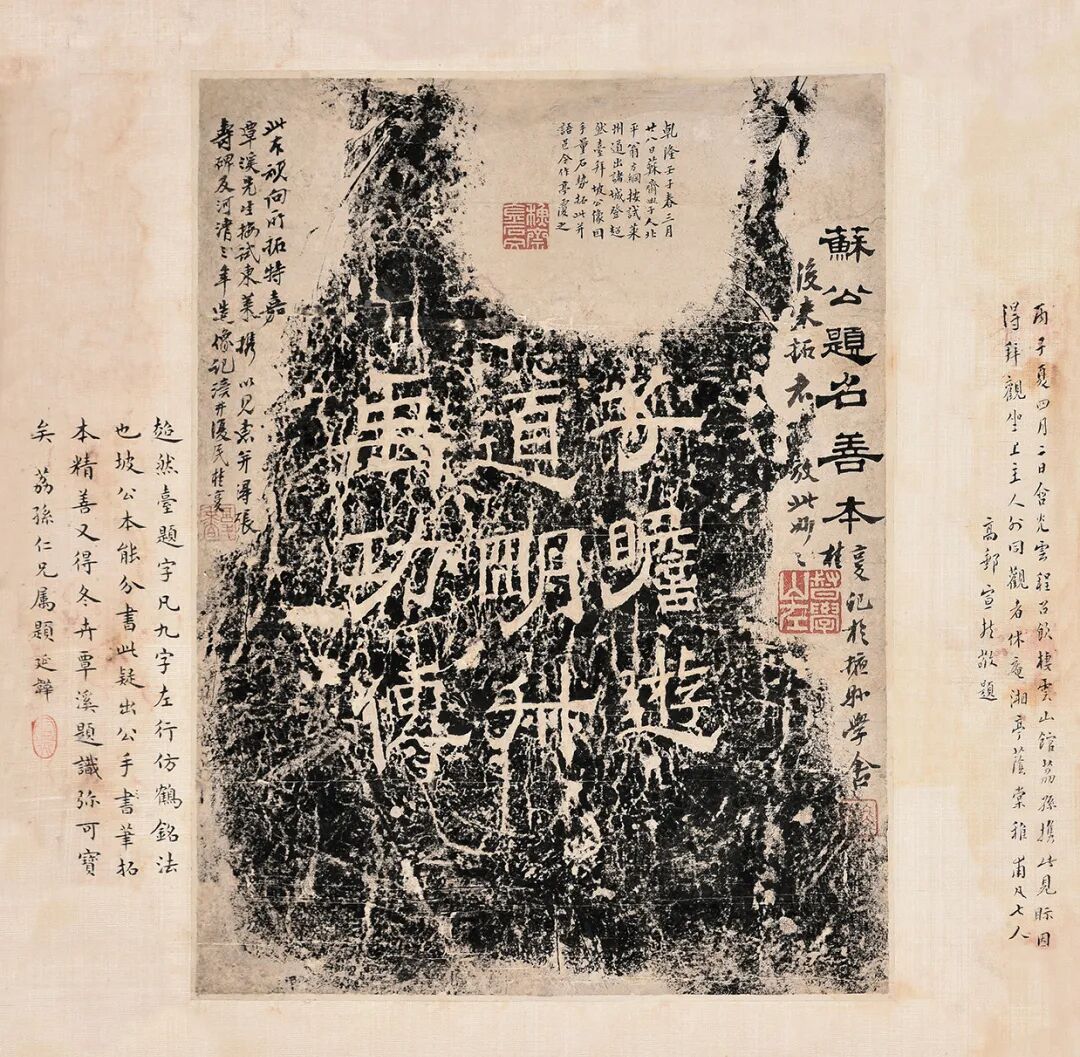 丙子夏四月二日含光雲程召飲棲雲山館荔孫攜此見眎因
得拜觀坐上主人外同觀者休庵湘亭蔭棠雅甫及七人
高郵宣哲敬題
蘇公題名善本
後來拓者
桂馥記於掖縣學舍
督學山左
乾隆壬子春三月
廿八日蘇齋學人北
平翁方綱按試萊
州道出諸城登超
然臺拜坡公像因
手量石勢拓此并
語邑令作亭覆之
禹功傳
道明叔
子瞻遊
所拓特嘉
覃溪先生按試東萊攜以見示并得張
壽碑及河清三年造像記桂馥
超然臺題字凡九字左行仿鶴銘法
也坡公本能分書此疑出公手書筆拓
本精善又得冬卉覃溪題識彌可寶
矣 荔孫仁兄屬題延